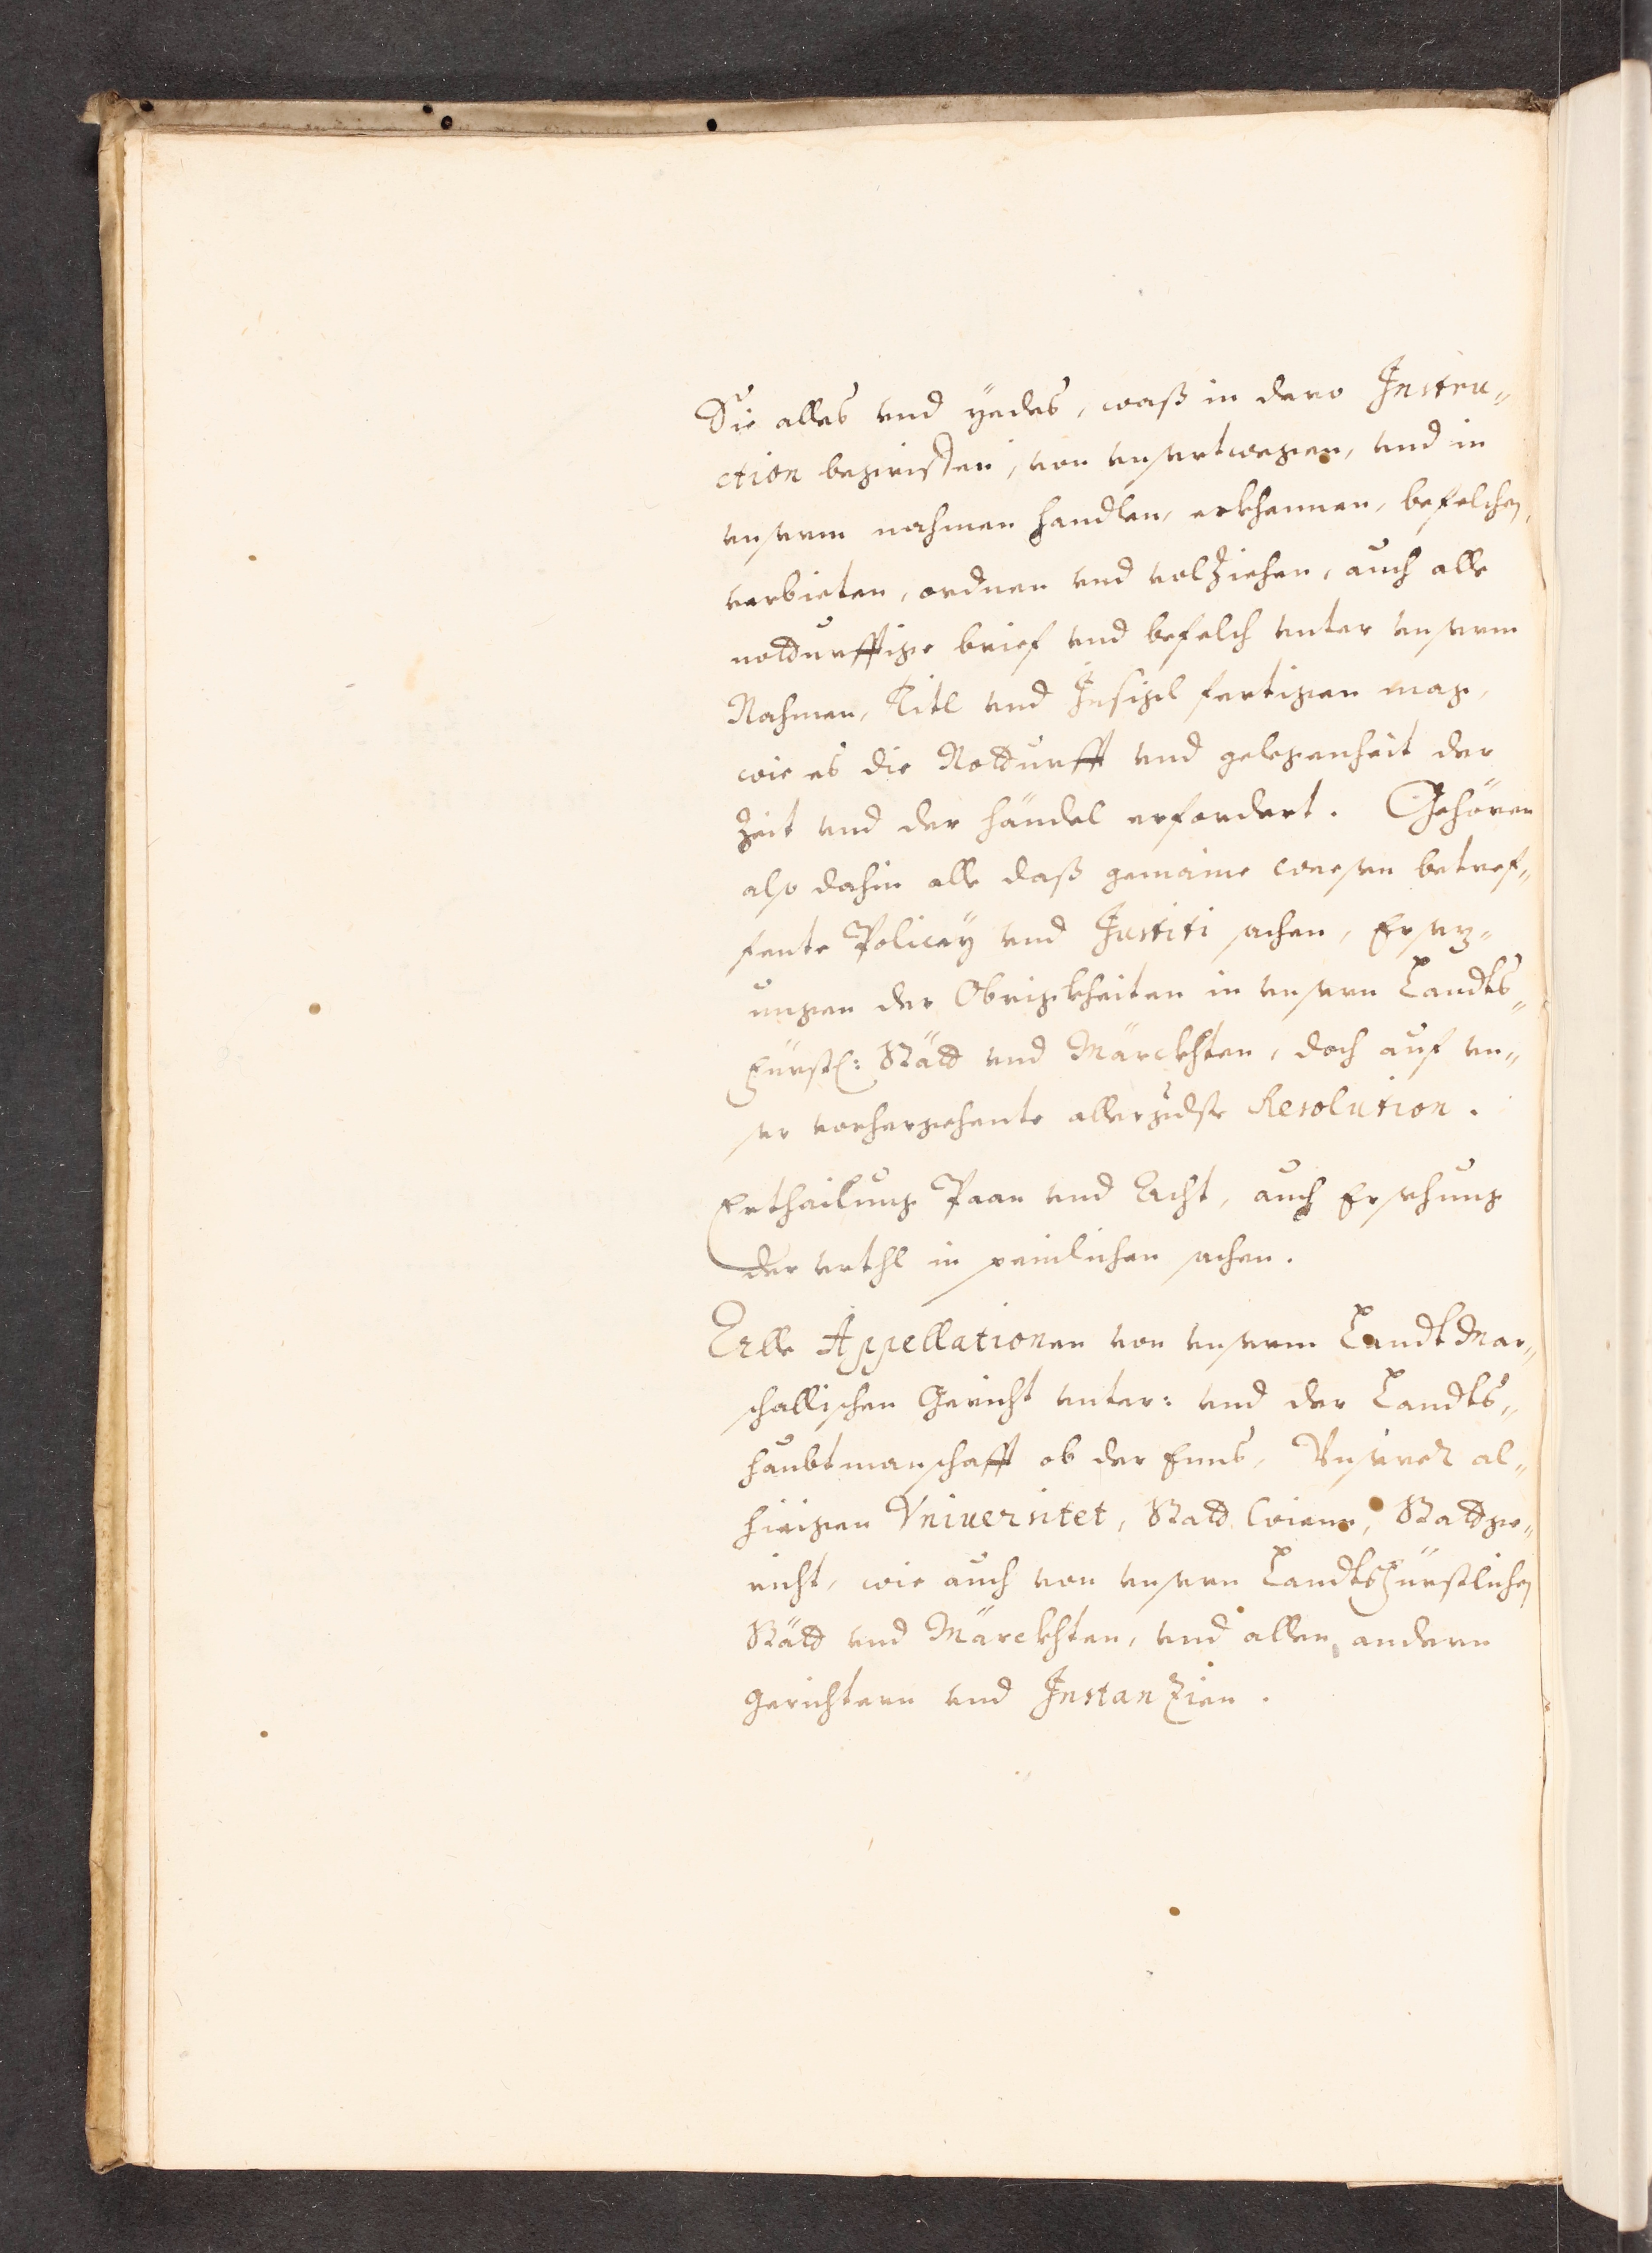 Sie alles vnd yedes, waß in dero Instru„
ction begriffen, von vnsertwegen, vnd in
vnserm nahmen handlen, erkhennen, befelchen,
verbieten, ordnen vnd volziehen, auch alle
notdurfftige brief vnd befelch vnter vnserm
Nahmen, Titl vnd Insigl fertigen mag,
wie es die Notdurfft vnd gelegenheit der
Zeit vnd der händel erfordert. Gehören
also dahin alle daß gemaine weesen betref„
fente Policey vnd Justiti sachen, Ersez„
ungen der Obrigkheiten in vnsern Landts„
Fürstl: Stätt vnd Märckhten, doch auf vn„
ser vorhergehente allergndste Resolution.
Ertheilung Paan vnd Acht, auch Ersehung
der vrthl in peinlichen sachen.
Alle Appellationen von vnserm Landt Mar„
schallischen Gericht vnter: vnd der Landts„
haubtmanschafft ob der Enns, Vnserer al„
hieigen Vniuersitet, Statt Wienn, Stattge„
richt, wie auch von vnsern Landtsfürstlichen
Stätt vnd Märckhten, vnd allen andern
Gerichtern vnd Instanzien.